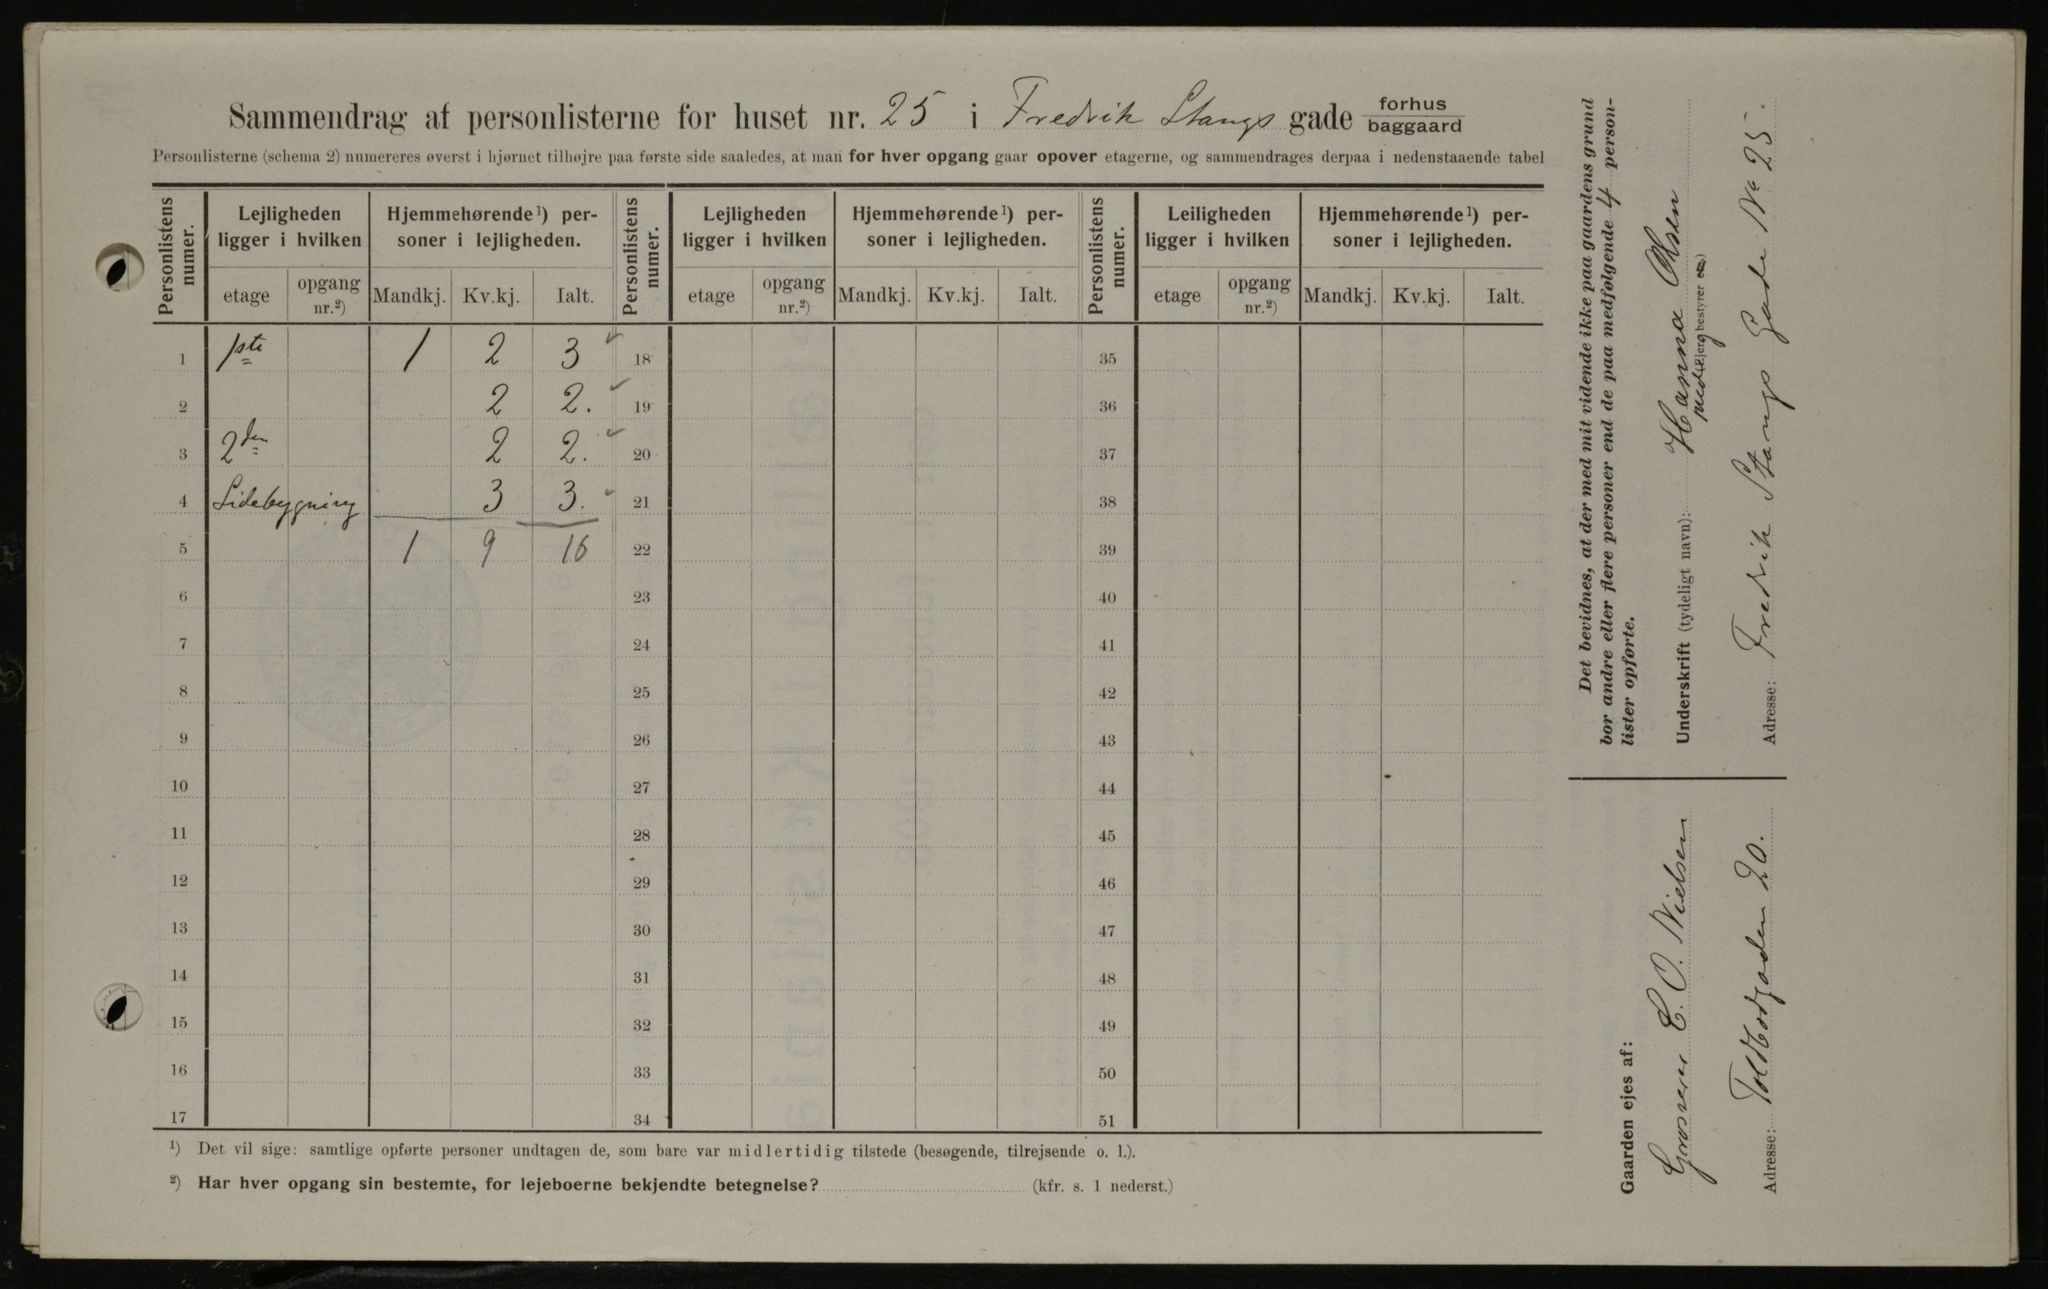 Sammendrag af personlisterne for huset nr. 25 i Fredrik Stangs gade forhus baggaard
Personlisterne (schema 2) numereres øverst i hjørnet tilhøjre paa første side saaledes, at man for hver opgang gaar opover etagerne, og sammendrages derpaa i nedenstaaende tabel
Personlistens numer. Lejligheden ligger i hvilken Hjemmehørende¹) personer i lejligheden. Personlistens numer. Lejligheden ligger i hvilken Hjemmehørende¹) personer i lejligheden. Personlistens numer. Leiligheden ligger i hvilken Hjemmehørende¹) personer i lejligheden.
etage opgang nr.²) Mandkj. Kv.kj. Ialt. etage opgang nr.²) Mandkj. Kv.kj. Ialt. etage opgang nr.²) Mandkj. Kv.kj. Ialt.
1 1ste 1 2 3 18 35
2 2 2. 19 36
3 2den 2 2. 20 37
4 Sidebygning 3 3. 21 38
5 1 9 10 22 39
6 23 40
7 24 41
8 25 42
9 26 43
10 27 44
11 28 45
12 29 46
13 30 47
14 31 48
15 32 49
16 33 50
17 34 51
¹) Det vil sige: samtlige opførte personer undtagen de, som bare var midlertidig tilstede (besøgende, tilrejsende o. l.).
²) Har hver opgang sin bestemte, for lejeboerne bekjendte betegnelse? (kfr. s. 1 nederst.)
Det bevidnes, at der med mit vidende ikke paa gaardens grund
bor andre eller flere personer end de paa medfølgende 4 person-
lister opførte.
Underskrift (tydeligt navn): Hanna Olsen
Adresse: Fredrik Stangs Gade No 25.
Gaarden ejes af:
Grosserer C. O. Nielsen
Adresse: Toldbodgaden 20.